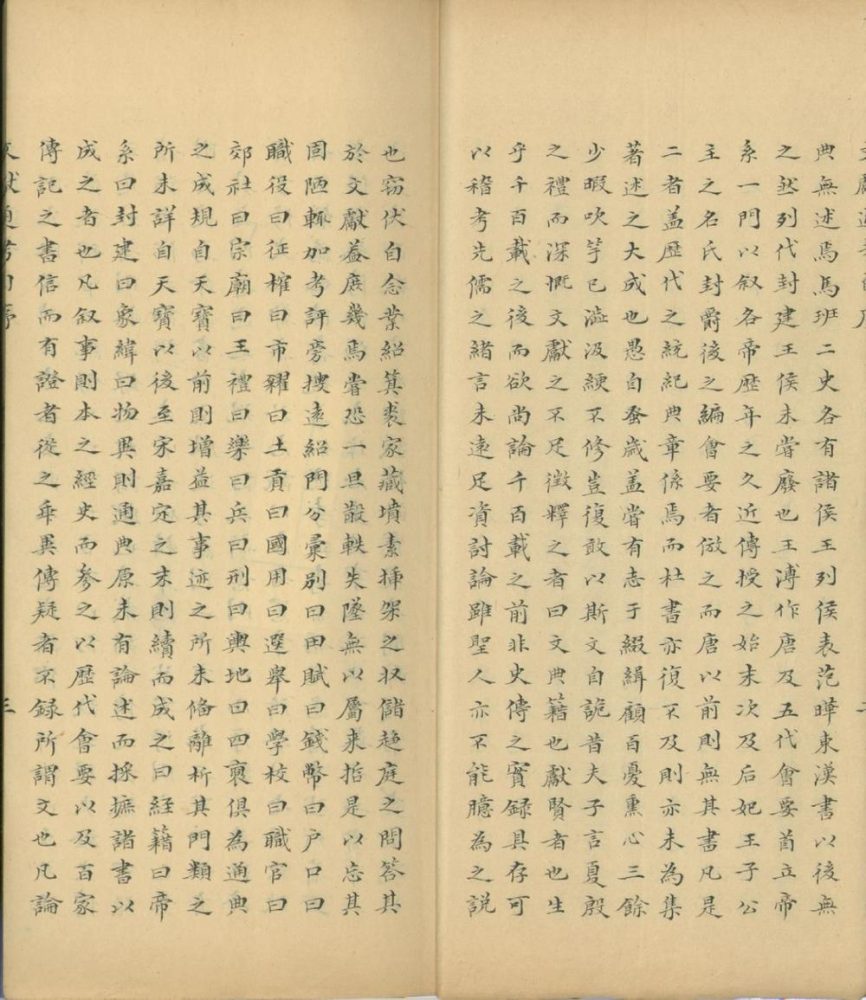 典無述焉馬班二史各有諸侯王列侯表范曄東漢書以後無
之然列代封建王侯未嘗廢也王溥作唐及五代會要首立帝
系一門以叙各帝歴年之久近傳授之始末次及后妃王子公
主之名氏封爵後之編會要者倣之而唐以前則無其書凡是
二者盖歴代之統紀典章係焉而杜書亦復不及則亦未為集
著述之大成也愚自蚤歲盖嘗有志于綴緝顧百憂熏心三餘
少暇吹竽已澁汲綆不修豈復敢以斯文自詭昔夫子言夏殷
之禮而深慨文獻之不足徴釋之者曰文典籍也獻賢者也生
乎千百載之後而欲尚論千百載之前非史傳之實録具存可
以稽考先儒之緒言未遠足資討論雖聖人亦不能臆為之説
也竊伏自念業紹箕裘家藏墳索插架之收儲趨庭之問答其
於文獻葢庶幾焉嘗恐一旦散軼失墜無以屬来哲是以忘其
固陋輒加考評旁搜逺紹門分彚别曰田賦曰錢幣曰户口曰
職役曰征榷曰市糴曰土貢曰國用曰選舉曰學校曰職官曰
郊社曰宗廟曰王禮曰樂曰兵曰刑曰輿地曰四裔俱為通典
之成規自天寶以前則增益其事迹之所未備離析其門類之
所未詳自天寶以後至宋嘉定之末則續而成之曰経籍曰帝
系曰封建曰象緯曰物異則通典原未有論述而採摭諸書以
成之者也凡叙事則本之經史而參之以歴代會要以及百家
傳記之書信而有證者從之乖異傳疑者不録所謂文也凡論
三